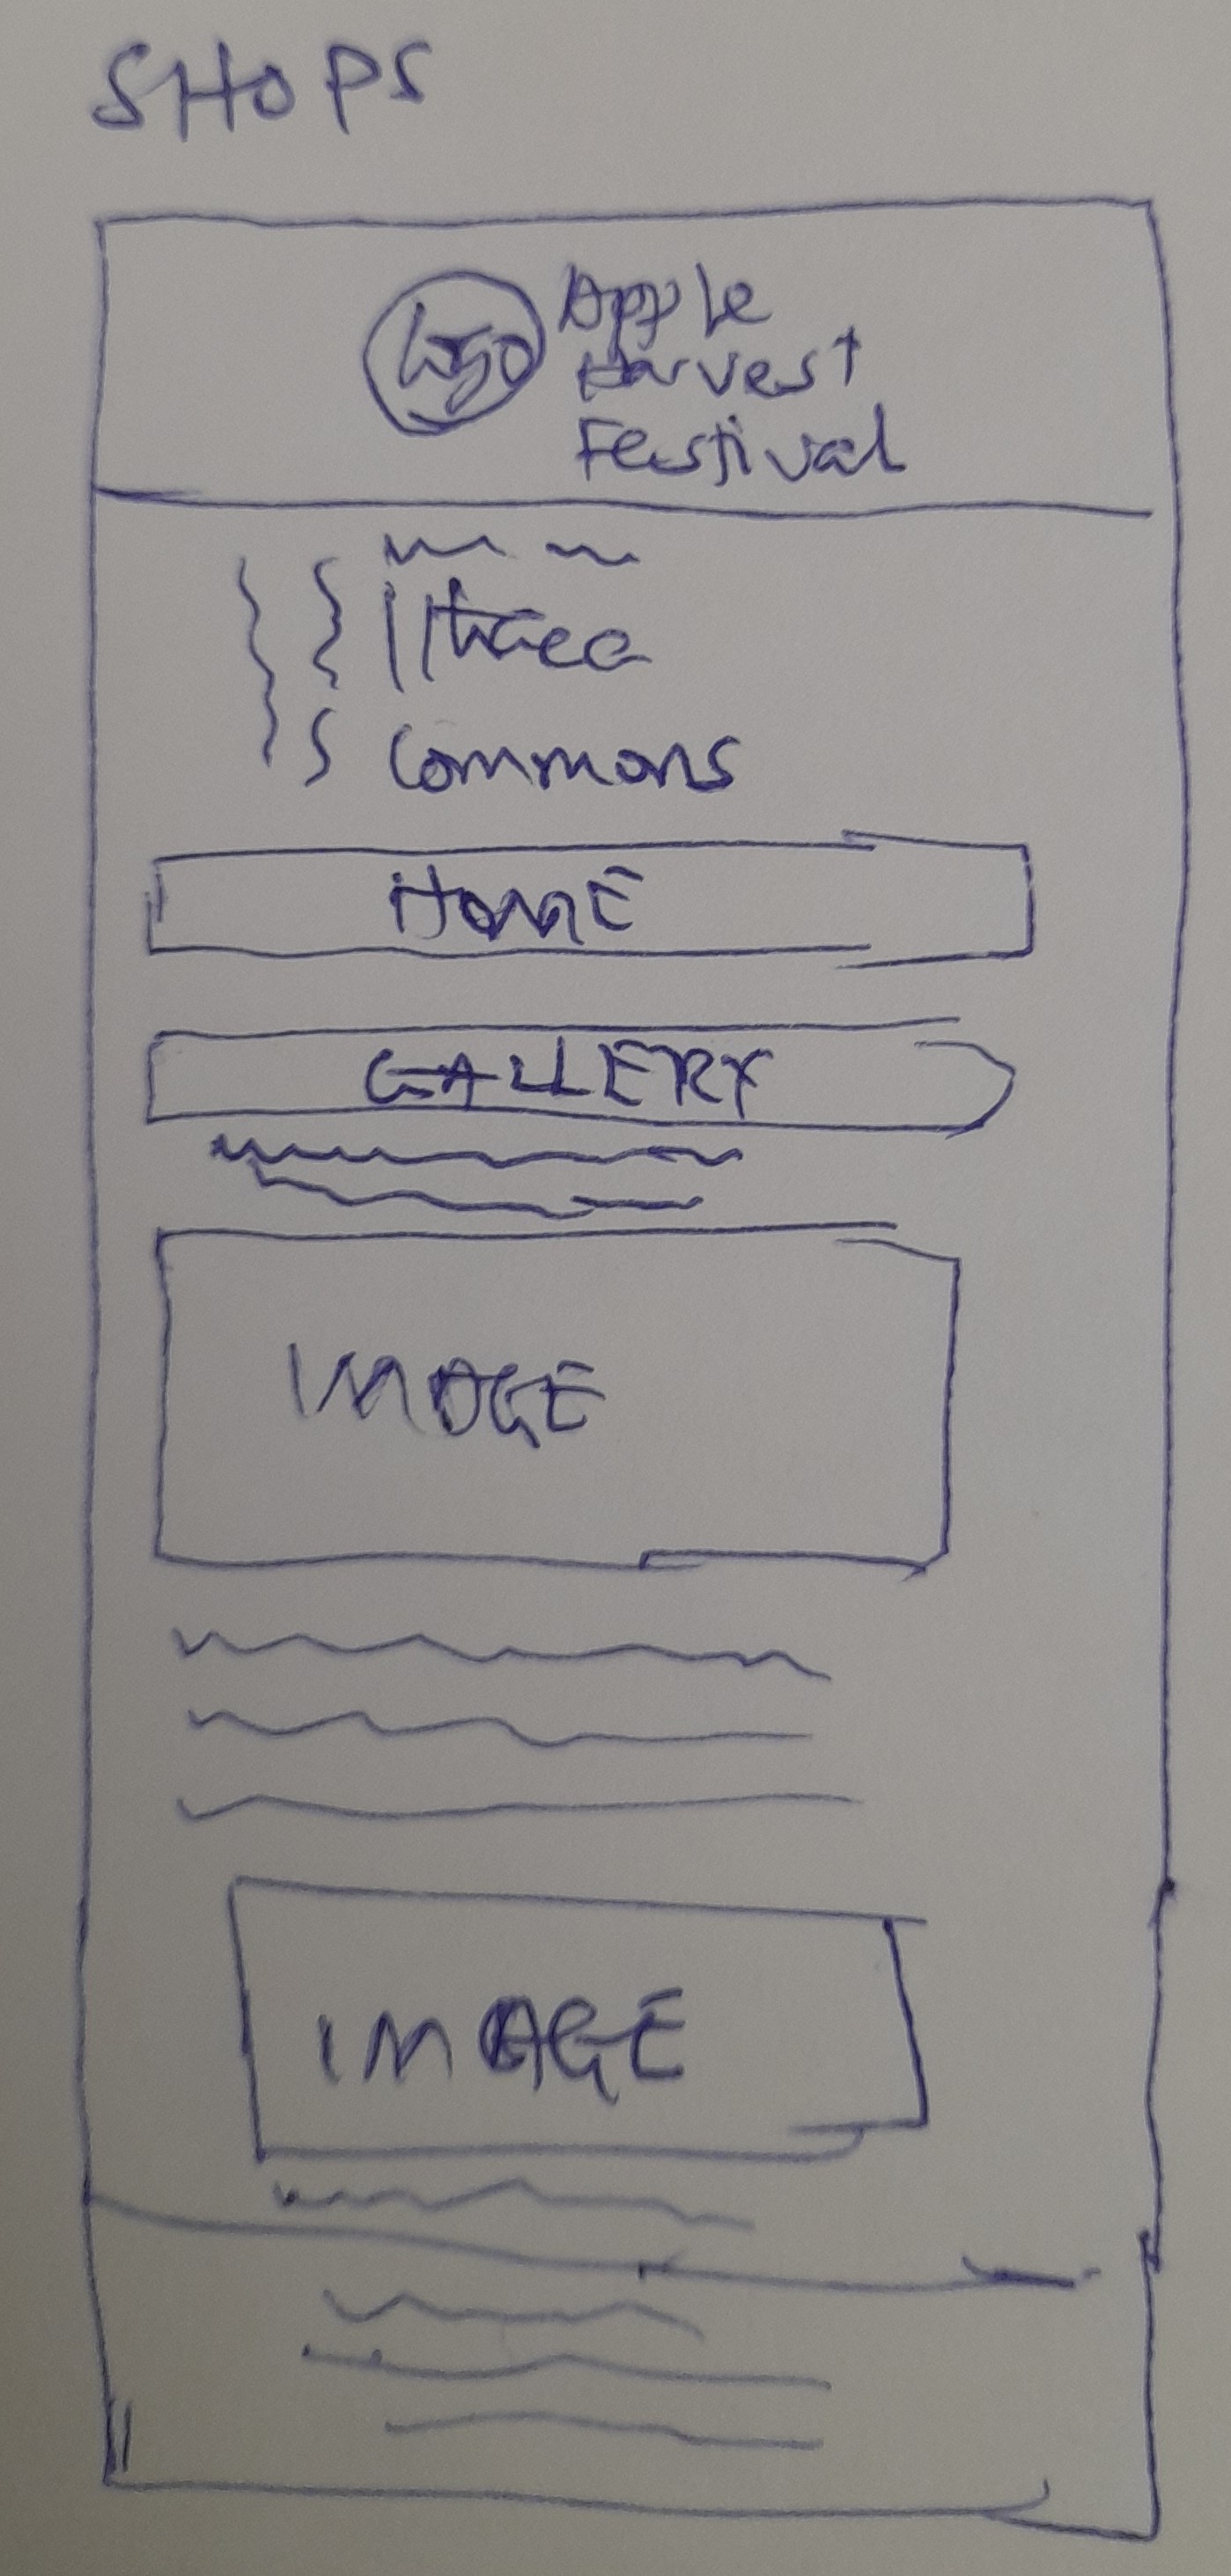 SHOPS
Logo
Apple
Harvest
Festival
Ithaca
Commons
HOME
GALLERY
IMAGE
IMAGE